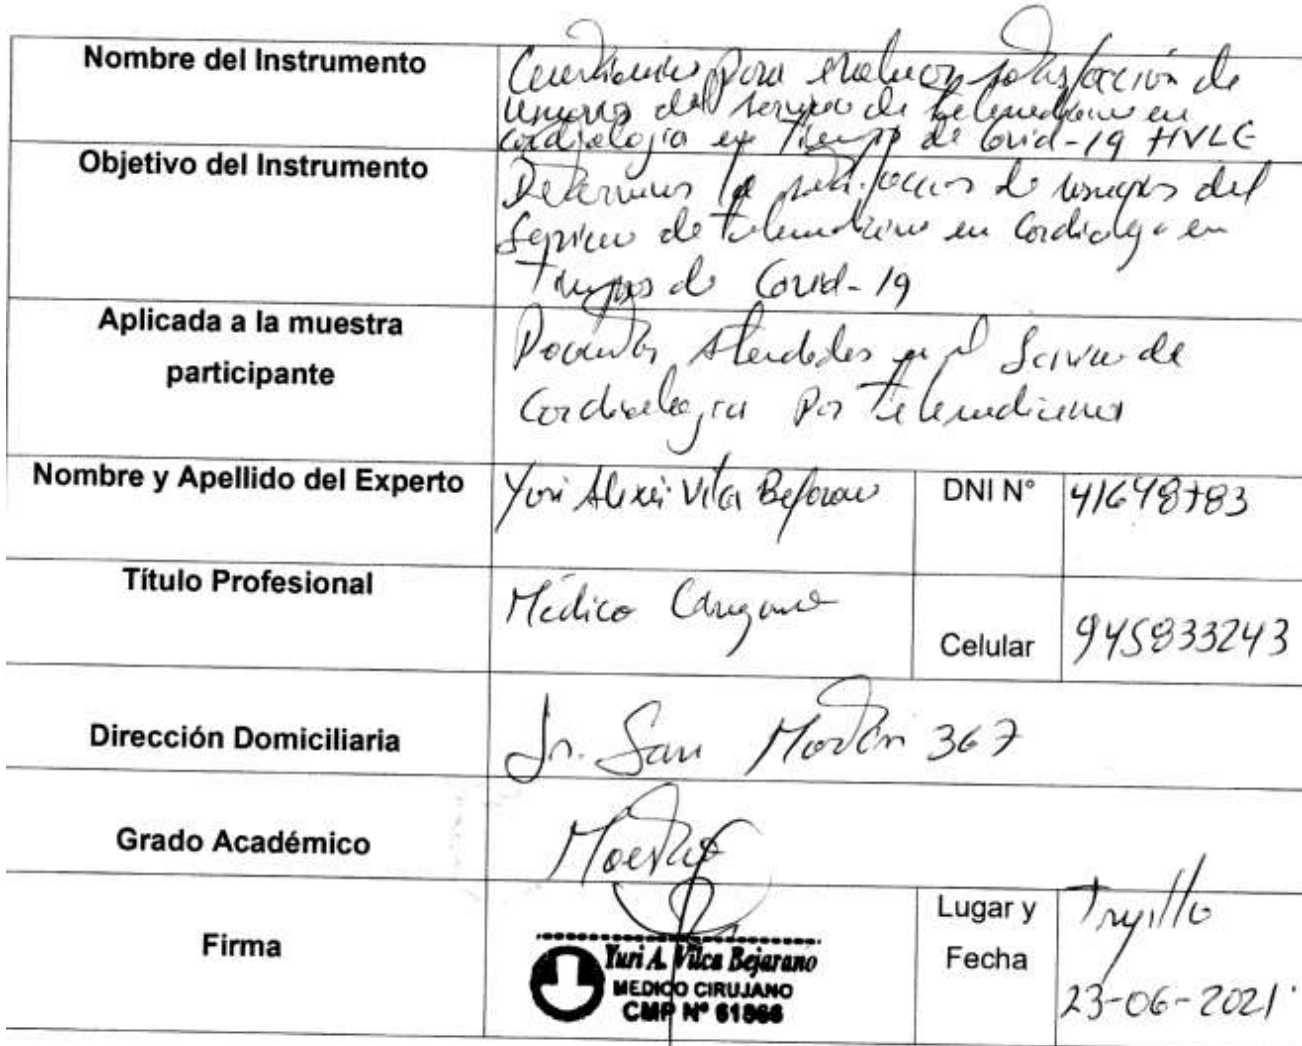 Nombre del Instrumento
Cuestionario para evaluar satisfacción de
usuarios del servicio de telemedicina en
cardiología en Tiempo de Covid-19 HVLE
Objetivo del Instrumento
Determinar la satisfaccion de usuarios del
Servicio de telemedicina en Cardiologia en
Tiempos de Covid-19
Aplicada a la muestra
participante
Pacientes Atendidos en el Servicio de
Cardiologia por Telemedicina
Nombre y Apellido del Experto
Yuri Alexei Vilca Bejarano
DNI N°
41648783
Título Profesional
Médico Cirujano
Celular
945833243
Dirección Domiciliaria
Jr. San Martin 367
Grado Académico
Maestro
Firma
Yuri A. Vilca Bejarano
MEDICO CIRUJANO
CMP N°
Lugar y
Fecha
Trujillo
23-06-2021